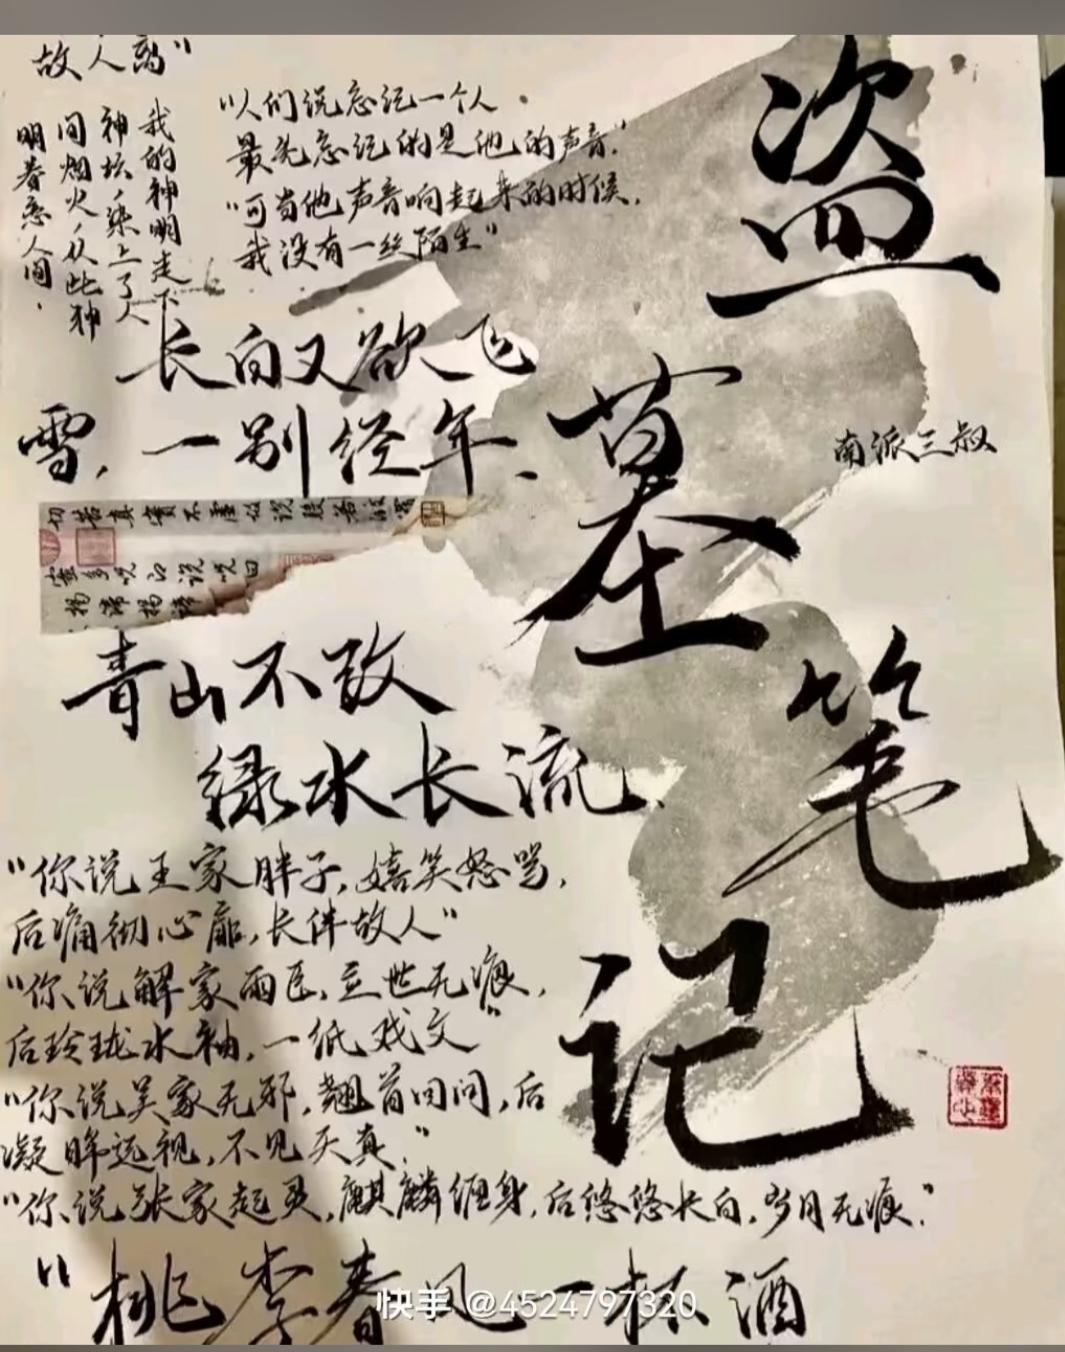 故人离"
"人们说忘记一个人
最先忘记的是他的声音."
"可当他声音响起来的时候.
我没有一丝陌生"
我的神明走下
神坛,染上了人
间烟火,从此神
明眷恋人间.
长白又欲飞
雪,一别经年.
盗墓笔记
南派三叔
切苦真實不虛故說般若
蜜多咒即說咒曰
揭諦揭諦
青山不改
绿水长流.
"你说王家胖子,嬉笑怒骂,
后痛彻心扉,长伴故人"
"你说解家雨臣,立世无痕,
后玲珑水袖,一纸戏文"
"你说吴家无邪,翘首回问,后
凝眸远视,不见天真."
"你说张家起灵,麒麟缠身,后悠悠长白,岁月无痕."
"桃李春风一杯酒
快手 @4524797320